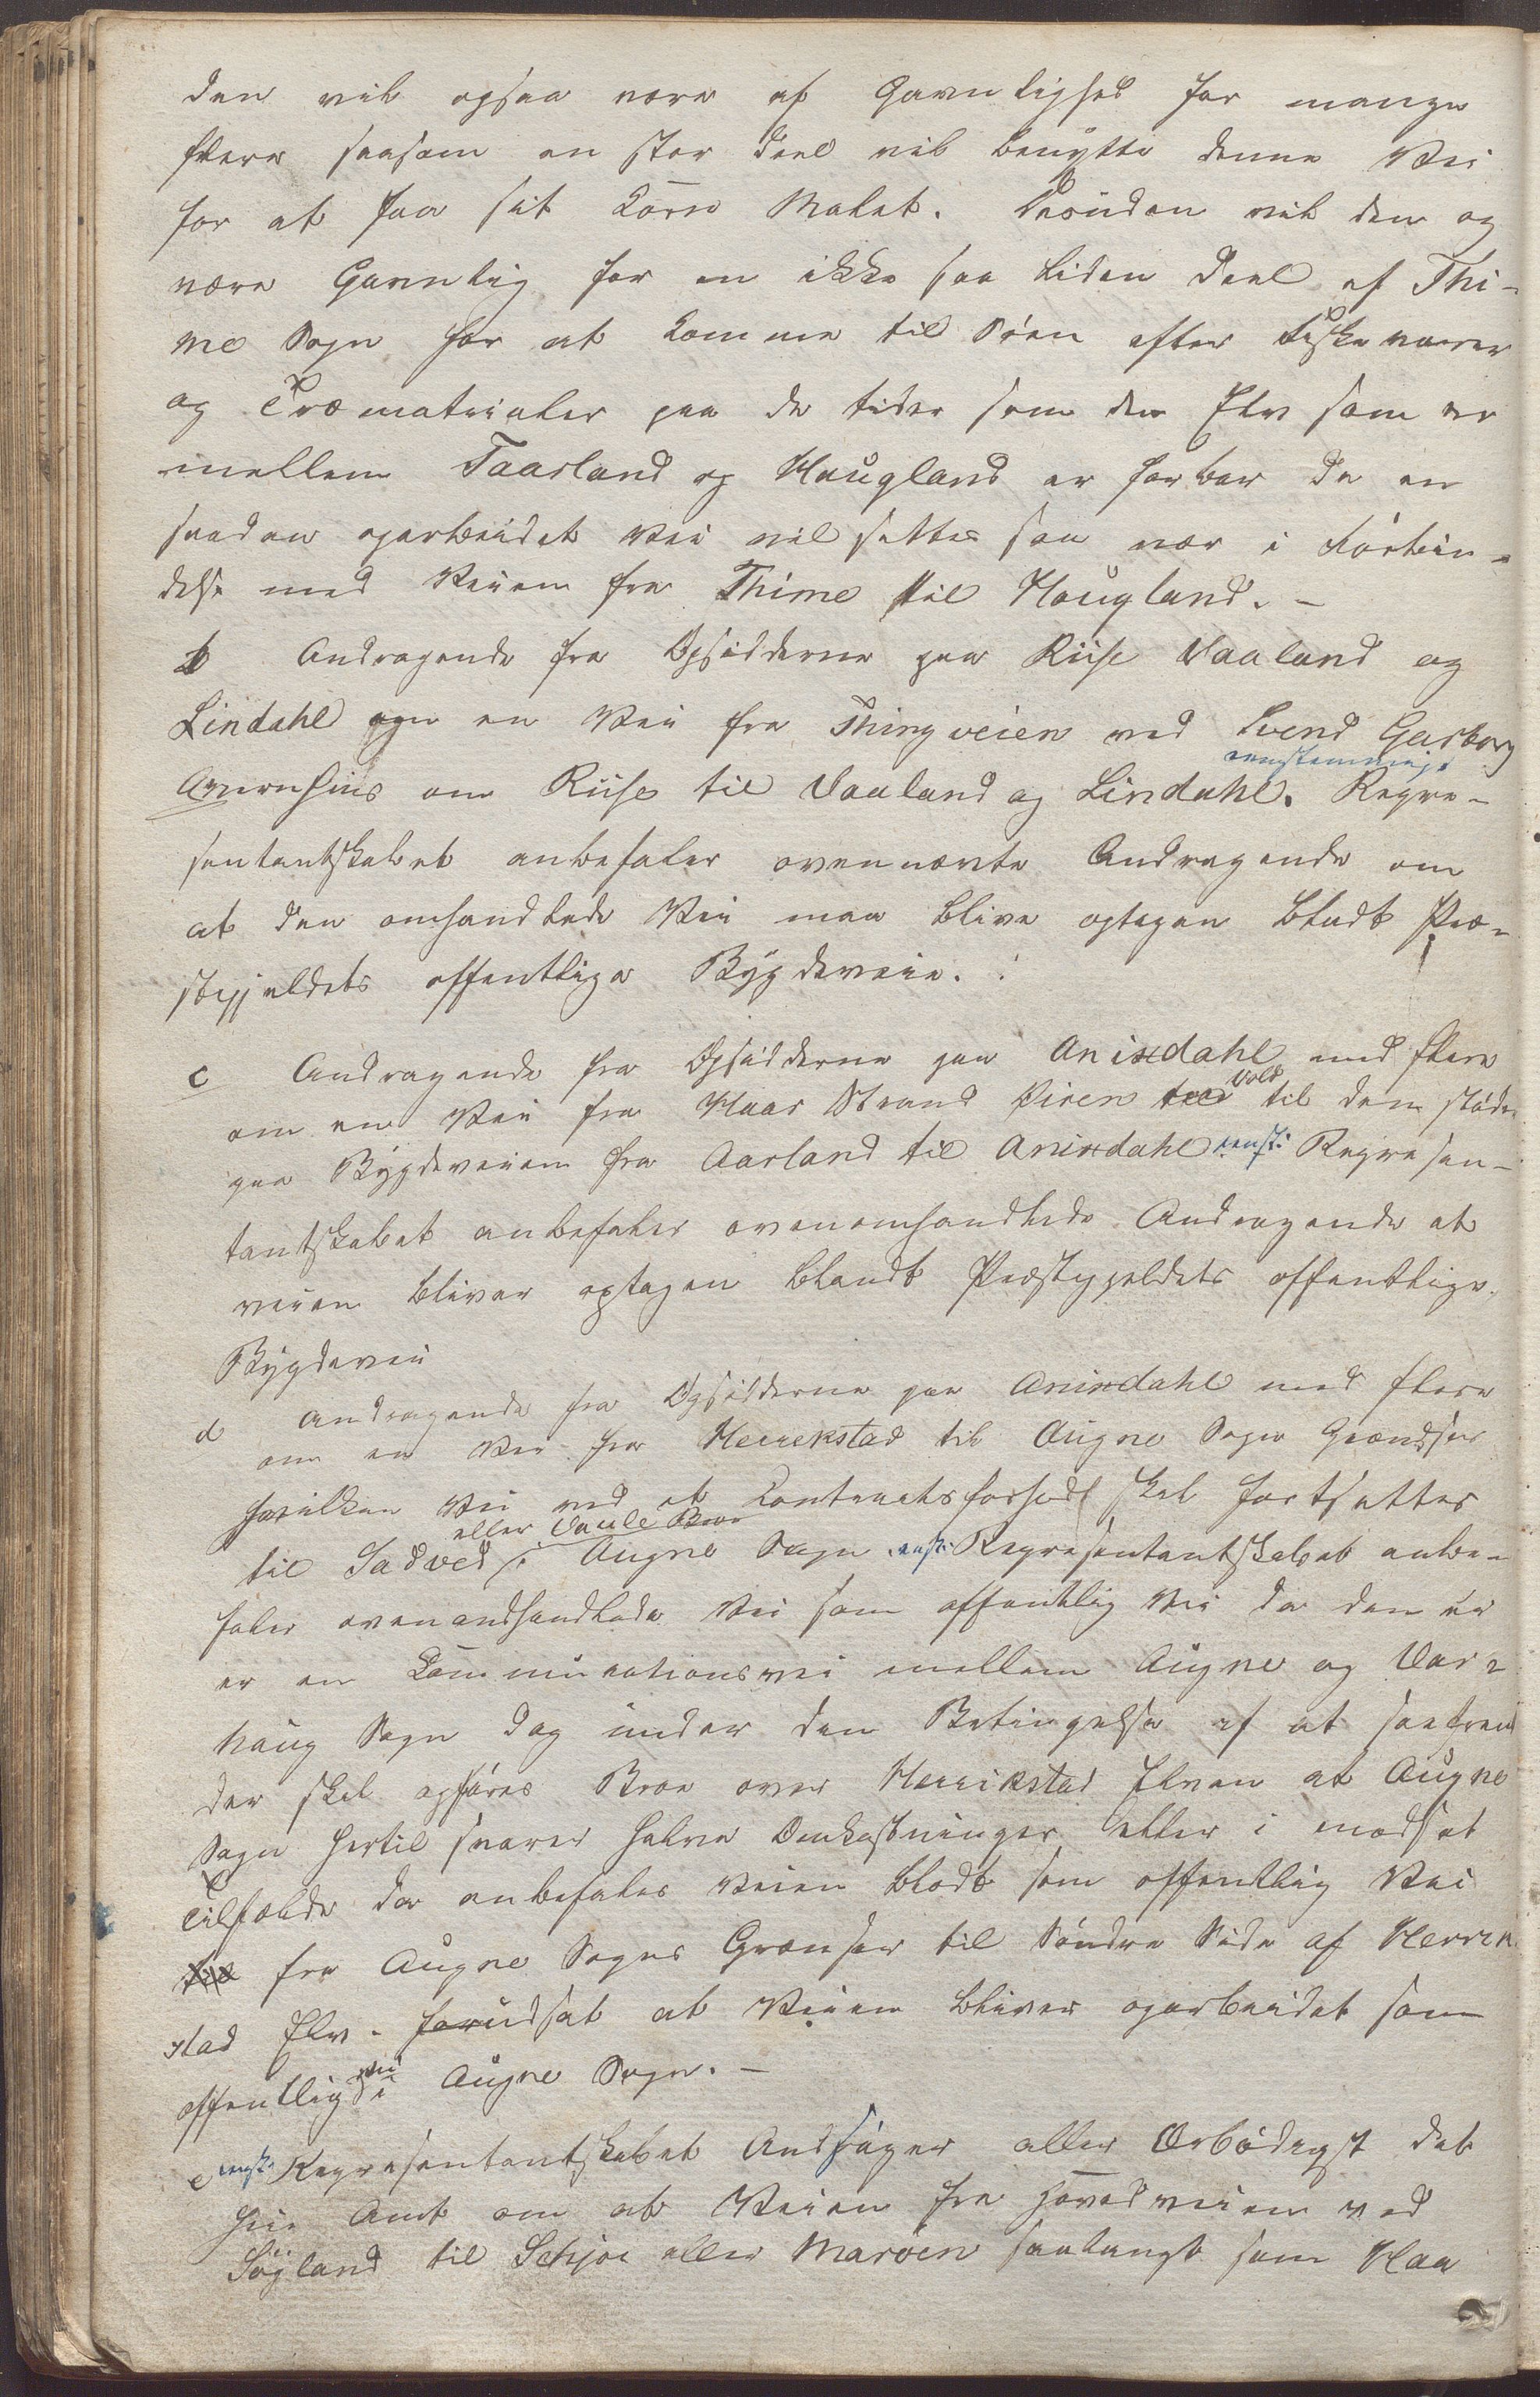 den vil ogsaa være af Gavnlighed for mange
flere saasom en stor Deel vil benytte denne Vei
for at faa sit Korn Malet. Desuden vil den og
være Gavnlig for en ikke saa liden Deel af Thi-
me Sogn for at komme til Søen efter Fiskevarer
og Træmaterialer paa de tider som den Elv som er
mellem Taarland og Haugland er farbar da en
saadan oparbeidet Vei vil sættes saa nær i Forbin-
delse med Veien fra Thime til Haugland. -
b Andragende fra Opsidderne paa Riise Vaaland og
Lindahl om en Vei fra Thingveien ved Svend Garborg
eenstemmigt
Qvernhuus om Riise til Vaaland og Lindahl. Repræ-
sentantskabet anbefaler ovennævnte Andragende om
at den omhandlede Vei maa blive optagen bladt Præ-
stegjeldets offentlige Bygdeveie.
c Andragende fra Opsidderne paa Anisdahl med flere
Vold
om en Vei fra Haar Strand Piren til dem støder
paa Bygdeveien fra Aarland til Anisdahl eenst: Represen-
tantskabet anbefaler ovenomhandlede Andragende at
veien bliver optagen blandt Præstegjeldets offentlige
Bygdevei
d Andragende fra Opsidderne paa Anisdahl med flere
om en Vei fra Herrekstad til Augne Sogn Grændser
hvilken Vei ved et Contractsforhold skal fortsættes
eller Vaule Broe
til Sadved i Augne Sogn eenst: Representantskabet anbe-
faler ovenandhandlede Vei som offentlig Vei da den er
er en Communicationsvei mellem Augne og Var-
haug Sogn dog under den Betingelse af at saafremt
der skal opføres Broe over Herrikstad Elven at Augne
Sogn hertil svarer halve Omkostninger eller i modsat
Tilfælde da anbefales Veien blodt som offentlig Vei
til fra Augne Sogns Grænser til Søndre Side af Herrik
stad Elv. forudsat at Veien bliver oparbeidet som
vei
offentlig i Augne Sogn. -
e eenst: Representantskabet Andsøger aller Ærbødigst det
høie Amt om at Veien fra Hovedveien ved
Søyland til Schjæ eller Marøen saalangt som Haa